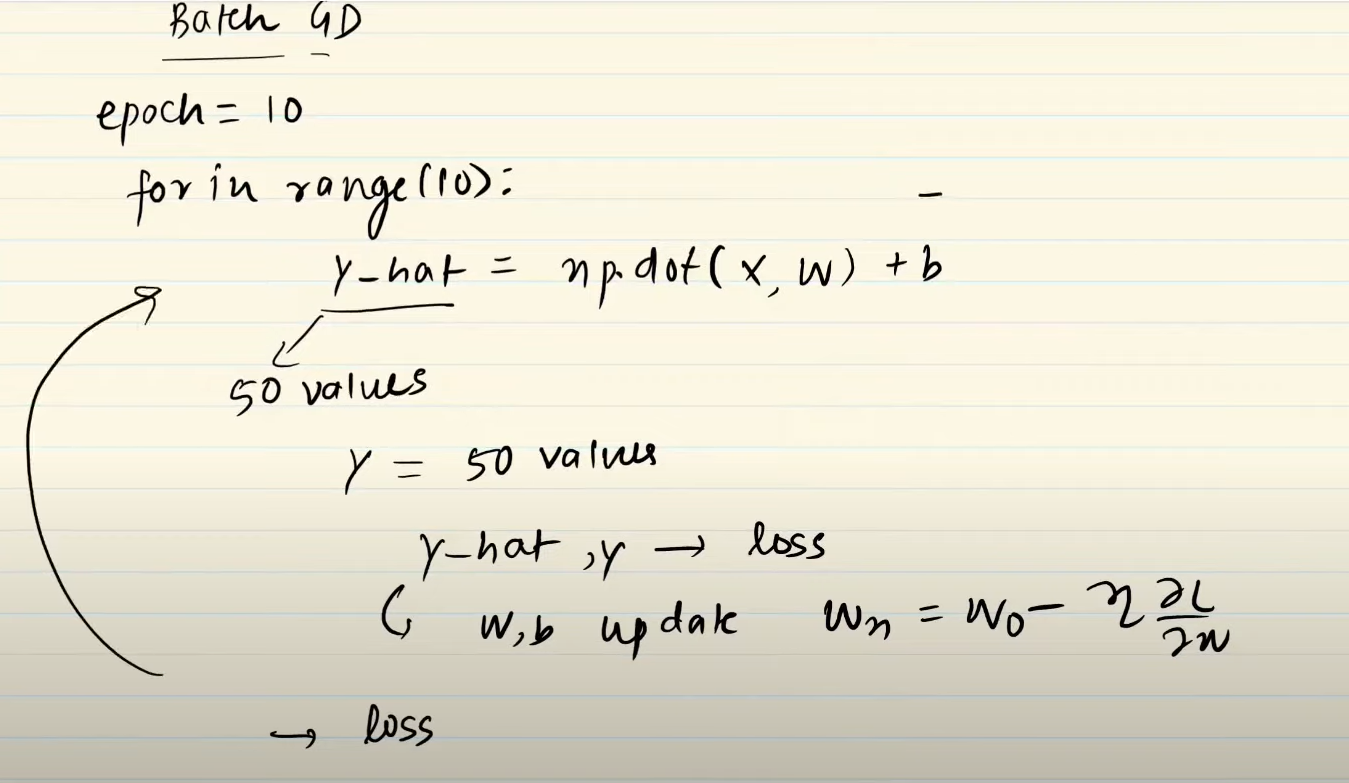 Batch GD
epoch = 10
for in range(10):
y-hat = np.dot(X, W) + b
50 values
Y = 50 values
y-hat, y → loss
W, b update Wn = W0 - η ∂L/∂W
→ loss